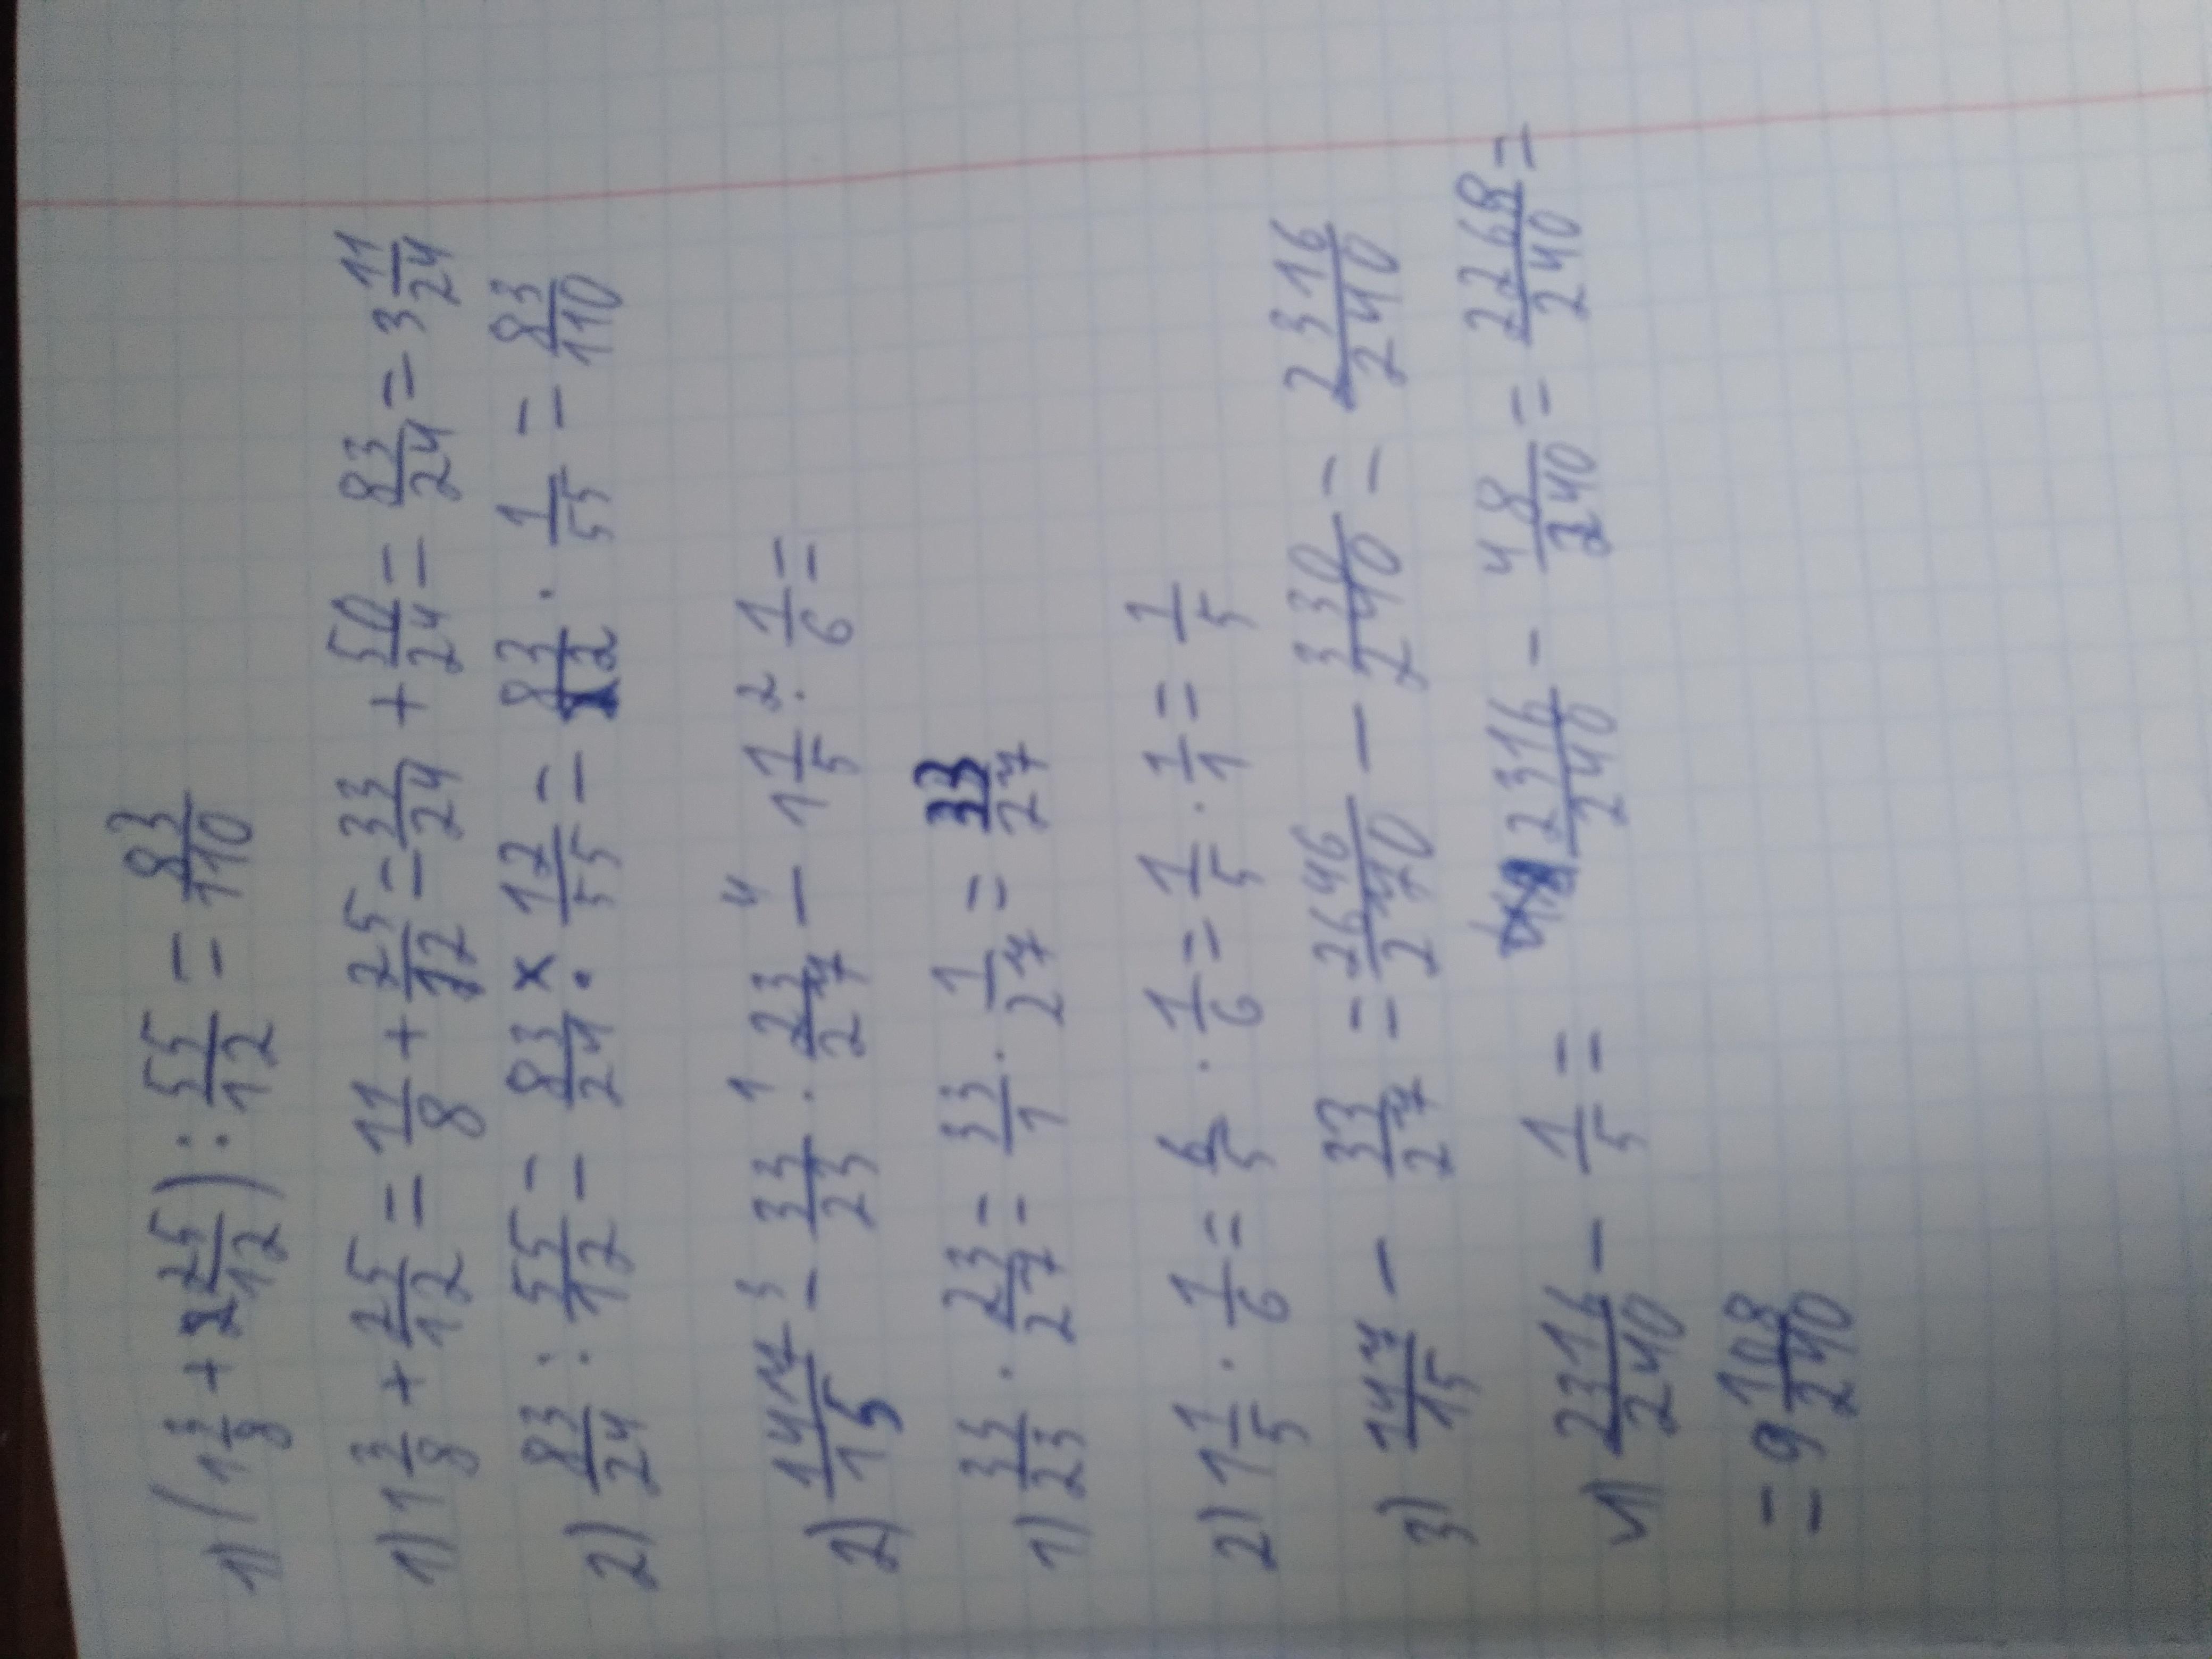 1) (1 3/8 + 2 25/12) : 55/12 = 83/110
1) 1 3/8 + 25/12 = 11/8 + 25/12 = 33/24 + 50/24 = 83/24 = 3 11/24
2) 83/24 : 55/12 = 83/24 · 12/55 = 83/2 · 1/55 = 83/110
2) 147/15 - 33/23 · 23/27 - 1 1/5 · 1/6 =
1) 33/23 · 23/27 = 33/1 · 1/27 = 33/27
2) 1 1/5 · 1/6 = 6/5 · 1/6 = 1/5 · 1/1 = 1/5
3) 147/15 - 33/27 = 2646/270 - 330/240 = 2316/240
4) 2316/240 - 1/5 = 2316/240 - 48/240 = 2268/240 =
= 9 108/240